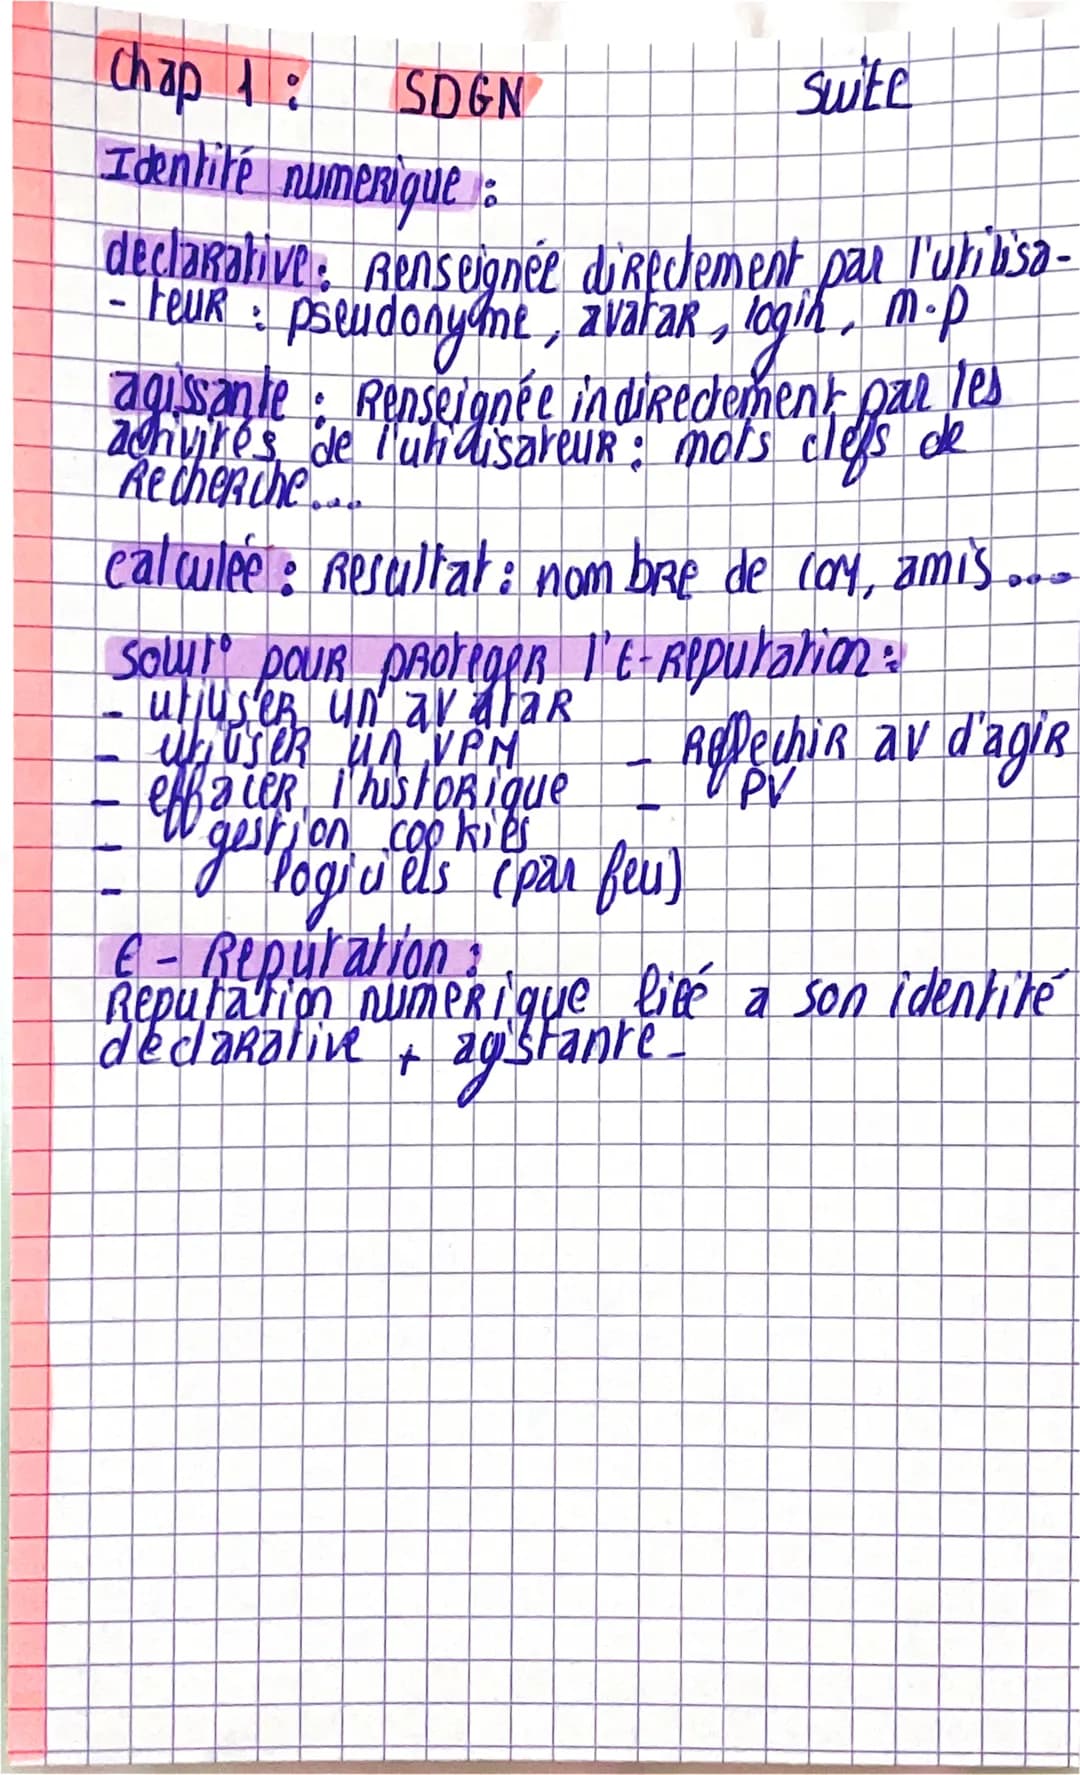 Chap 1 : SDGN suite
Identité numerique :
declarative : Renseignée directement par l'utilisa-
- teur : pseudonyme, avatar, login, m.p
agissante : Renseignée indirectement par les
activités de l'utilisateur : mots clefs de
Recherche...
calculée : Resultat : nombre de com, amis...
Solut° pour proteger l'E-Reputation :
- utiliser un avatar
- utiliser un VPN
- Reflechir av d'agir
- effacer l'historique
- PV
- gestion cookies
- logiciels (par feu)
E - Reputation :
Reputation numerique liéé a son identité
declarative + agistante.